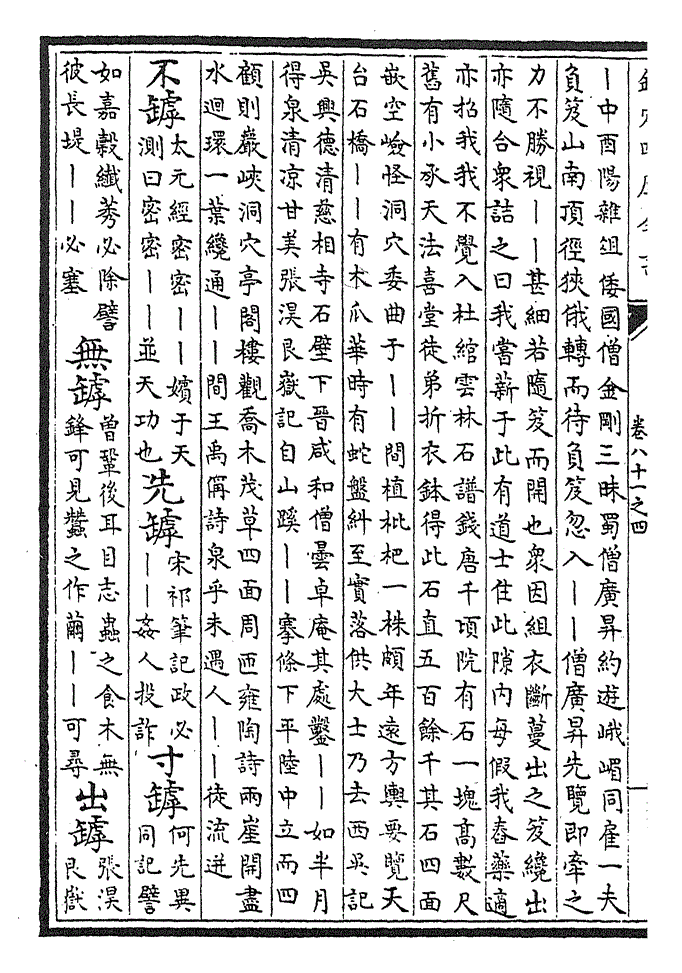 欽定四庫全書
卷八十一之四
丨中酉陽雜俎倭國僧金剛三昧蜀僧廣昇約遊峨嵋同雇一夫
負笈山南頂徑狹俄轉而待負笈忽入丨丨僧廣昇先覽即牽之
力不勝視丨丨甚細若隨笈而開也衆因組衣斷蔓出之笈纔出
亦隨合衆詰之曰我嘗薪于此有道士住此隙内每假我舂藥適
亦招我我不覺入杜綰雲林石譜錢唐千頃院有石一塊高數尺
舊有小承天法喜堂徒弟折衣鉢得此石直五百餘千其石四面
嵌空嶮怪洞穴委曲于丨丨間植枇杷一株頗年遠方輿要覽天
台石橋丨丨有木瓜華時有蛇盤糾至實落供大士乃去西吳記
吳興德清慈相寺石壁下晉咸和僧曇卓庵其處鑿丨丨如半月
得泉清凉甘美張淏艮嶽記自山蹊丨丨搴條下平陸中立而四
顧則巖峽洞穴亭閣樓觀喬木茂草四面周匝雍陶詩兩崖開盡
水迴環一葉纔通丨丨間王禹偁詩泉乎未遇人丨丨徒流迸
不罅
太元經密密丨丨嬪于天
測曰密密丨丨並天功也
先罅
宋祁筆記政必
丨丨姦人投詐
寸罅
何先異
同記譬
如嘉榖纖莠必除譬
彼長堤丨丨必塞
無罅
曾鞏後耳目志蟲之食木無
鋒可見蠶之作繭丨丨可尋
出罅
張淏
艮嶽